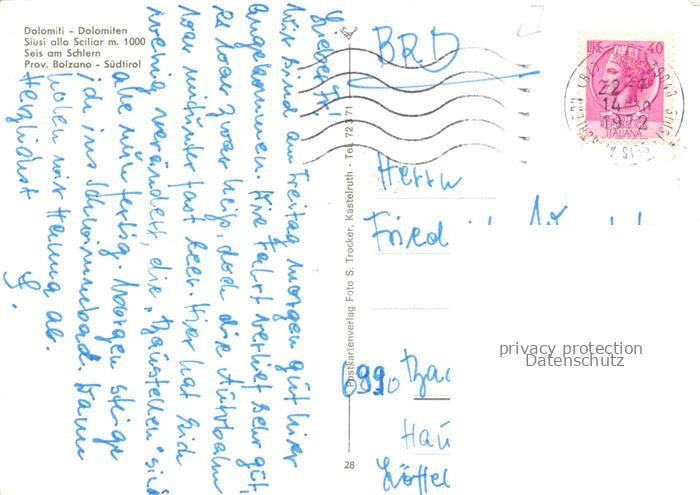 Dolomiti - Dolomiten
Siusi allo Sciliar m. 1000
Seis am Schlern
Prov. Bolzano - Südtirol
Wir sind am Freitag morgen gut hier
angekommen. Die Fahrt verlief sehr gut,
es war zwar heiß, doch die Autobahn
war mitunter fast leer. Hier hat sich
wenig verändert, die "Baustellen" sind
alle nun fertig. Morgen steige
ich ins Schwimmbad. Dann
holen wir Hanna ab.
Herzlichst
S.
Postkartenverlag Foto S. Trocker, Kastelruth - Tel. 72 3 71
28
BRD
LIRE 40
ITALIANA
22-7
14-
1972
Herrn
Fried
6990 Ba
Hau
Löffel
privacy protection
Datenschutz